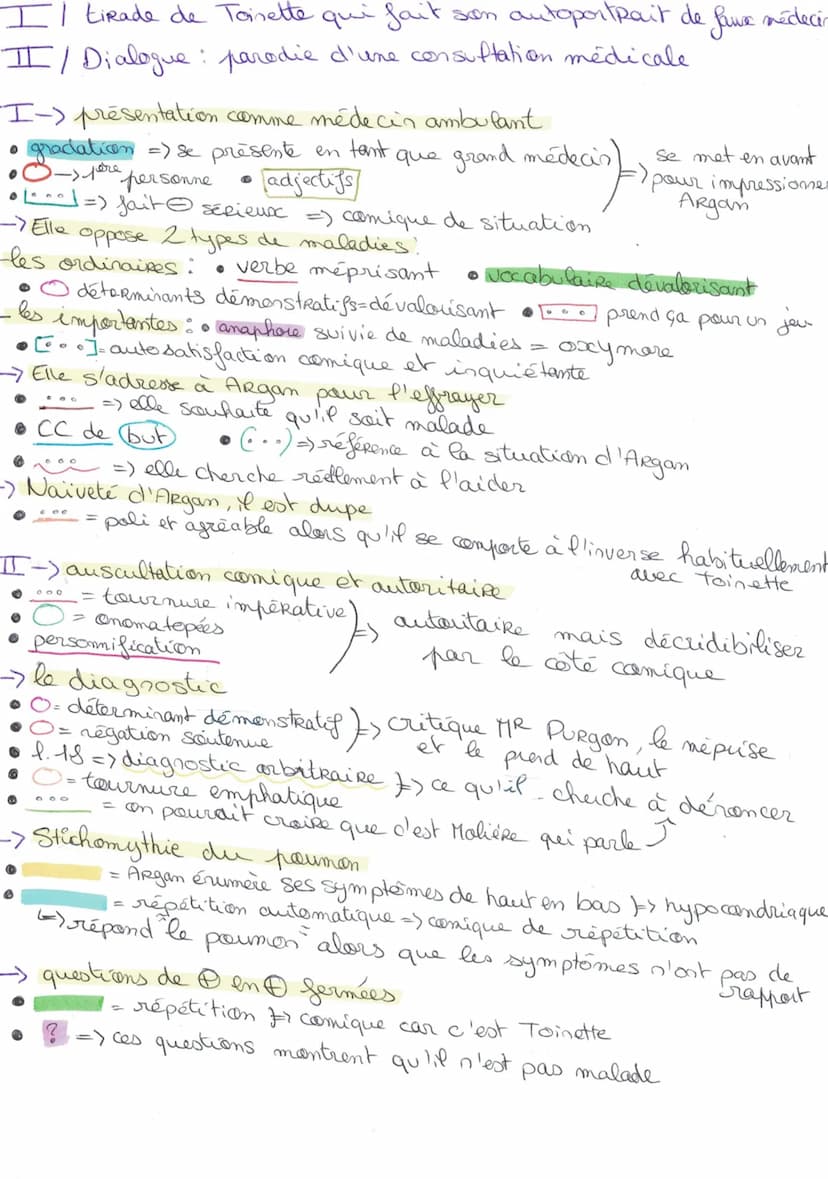 I / tirade de Toinette qui fait son autoportrait de faux médecin
II / Dialogue : parodie d'une consultation médicale
I -> présentation comme médecin ambulant
• gradation => se présente en tant que grand médecin
• O -> 1ère personne • adjectifs
• [...] => fait ⊖ sérieux => comique de situation
=> se met en avant
pour impressionner
Argan
-> Elle oppose 2 types de maladies :
- les ordinaires : • verbe méprisant • vocabulaire dévalorisant
• O déterminants démonstratifs = dévalorisant • [...] prend ça pour un jeu
- les importantes : • anaphore suivie de maladies = oxymore
• [...] = autosatisfaction comique et inquiétante
-> Elle s'adresse à Argan pour l'effrayer
• ... => elle souhaite qu'il soit malade
• CC de but • (...) => référence à la situation d'Argan
• ... => elle cherche réellement à l'aider
-> Naïveté d'Argan, il est dupe
• ... = poli et agréable alors qu'il se comporte à l'inverse habituellement
avec Toinette
II -> auscultation comique et autoritaire
• ... = tournure impérative
• O = onomatopées
• personnification
=> autoritaire mais décridibiliser
par le côté comique
-> le diagnostic
• O = déterminant démonstratif
• O = négation soutenue
=> critique MR PURGON, le méprise
et le prend de haut
• l. 18 => diagnostic arbitraire => ce qu'il cherche à dénoncer
• O = tournure emphatique
• ... = on pourrait croire que c'est Molière qui parle
-> Stichomythie du poumon
• = Argan énumère ses symptômes de haut en bas => hypocondriaque
• = répétition automatique => comique de répétition
↳ répond "le poumon" alors que les symptômes n'ont pas de
rapport
-> questions de ⊕ en ⊕ fermées
• = répétition => comique car c'est Toinette
• ? => ces questions montrent qu'il n'est pas malade